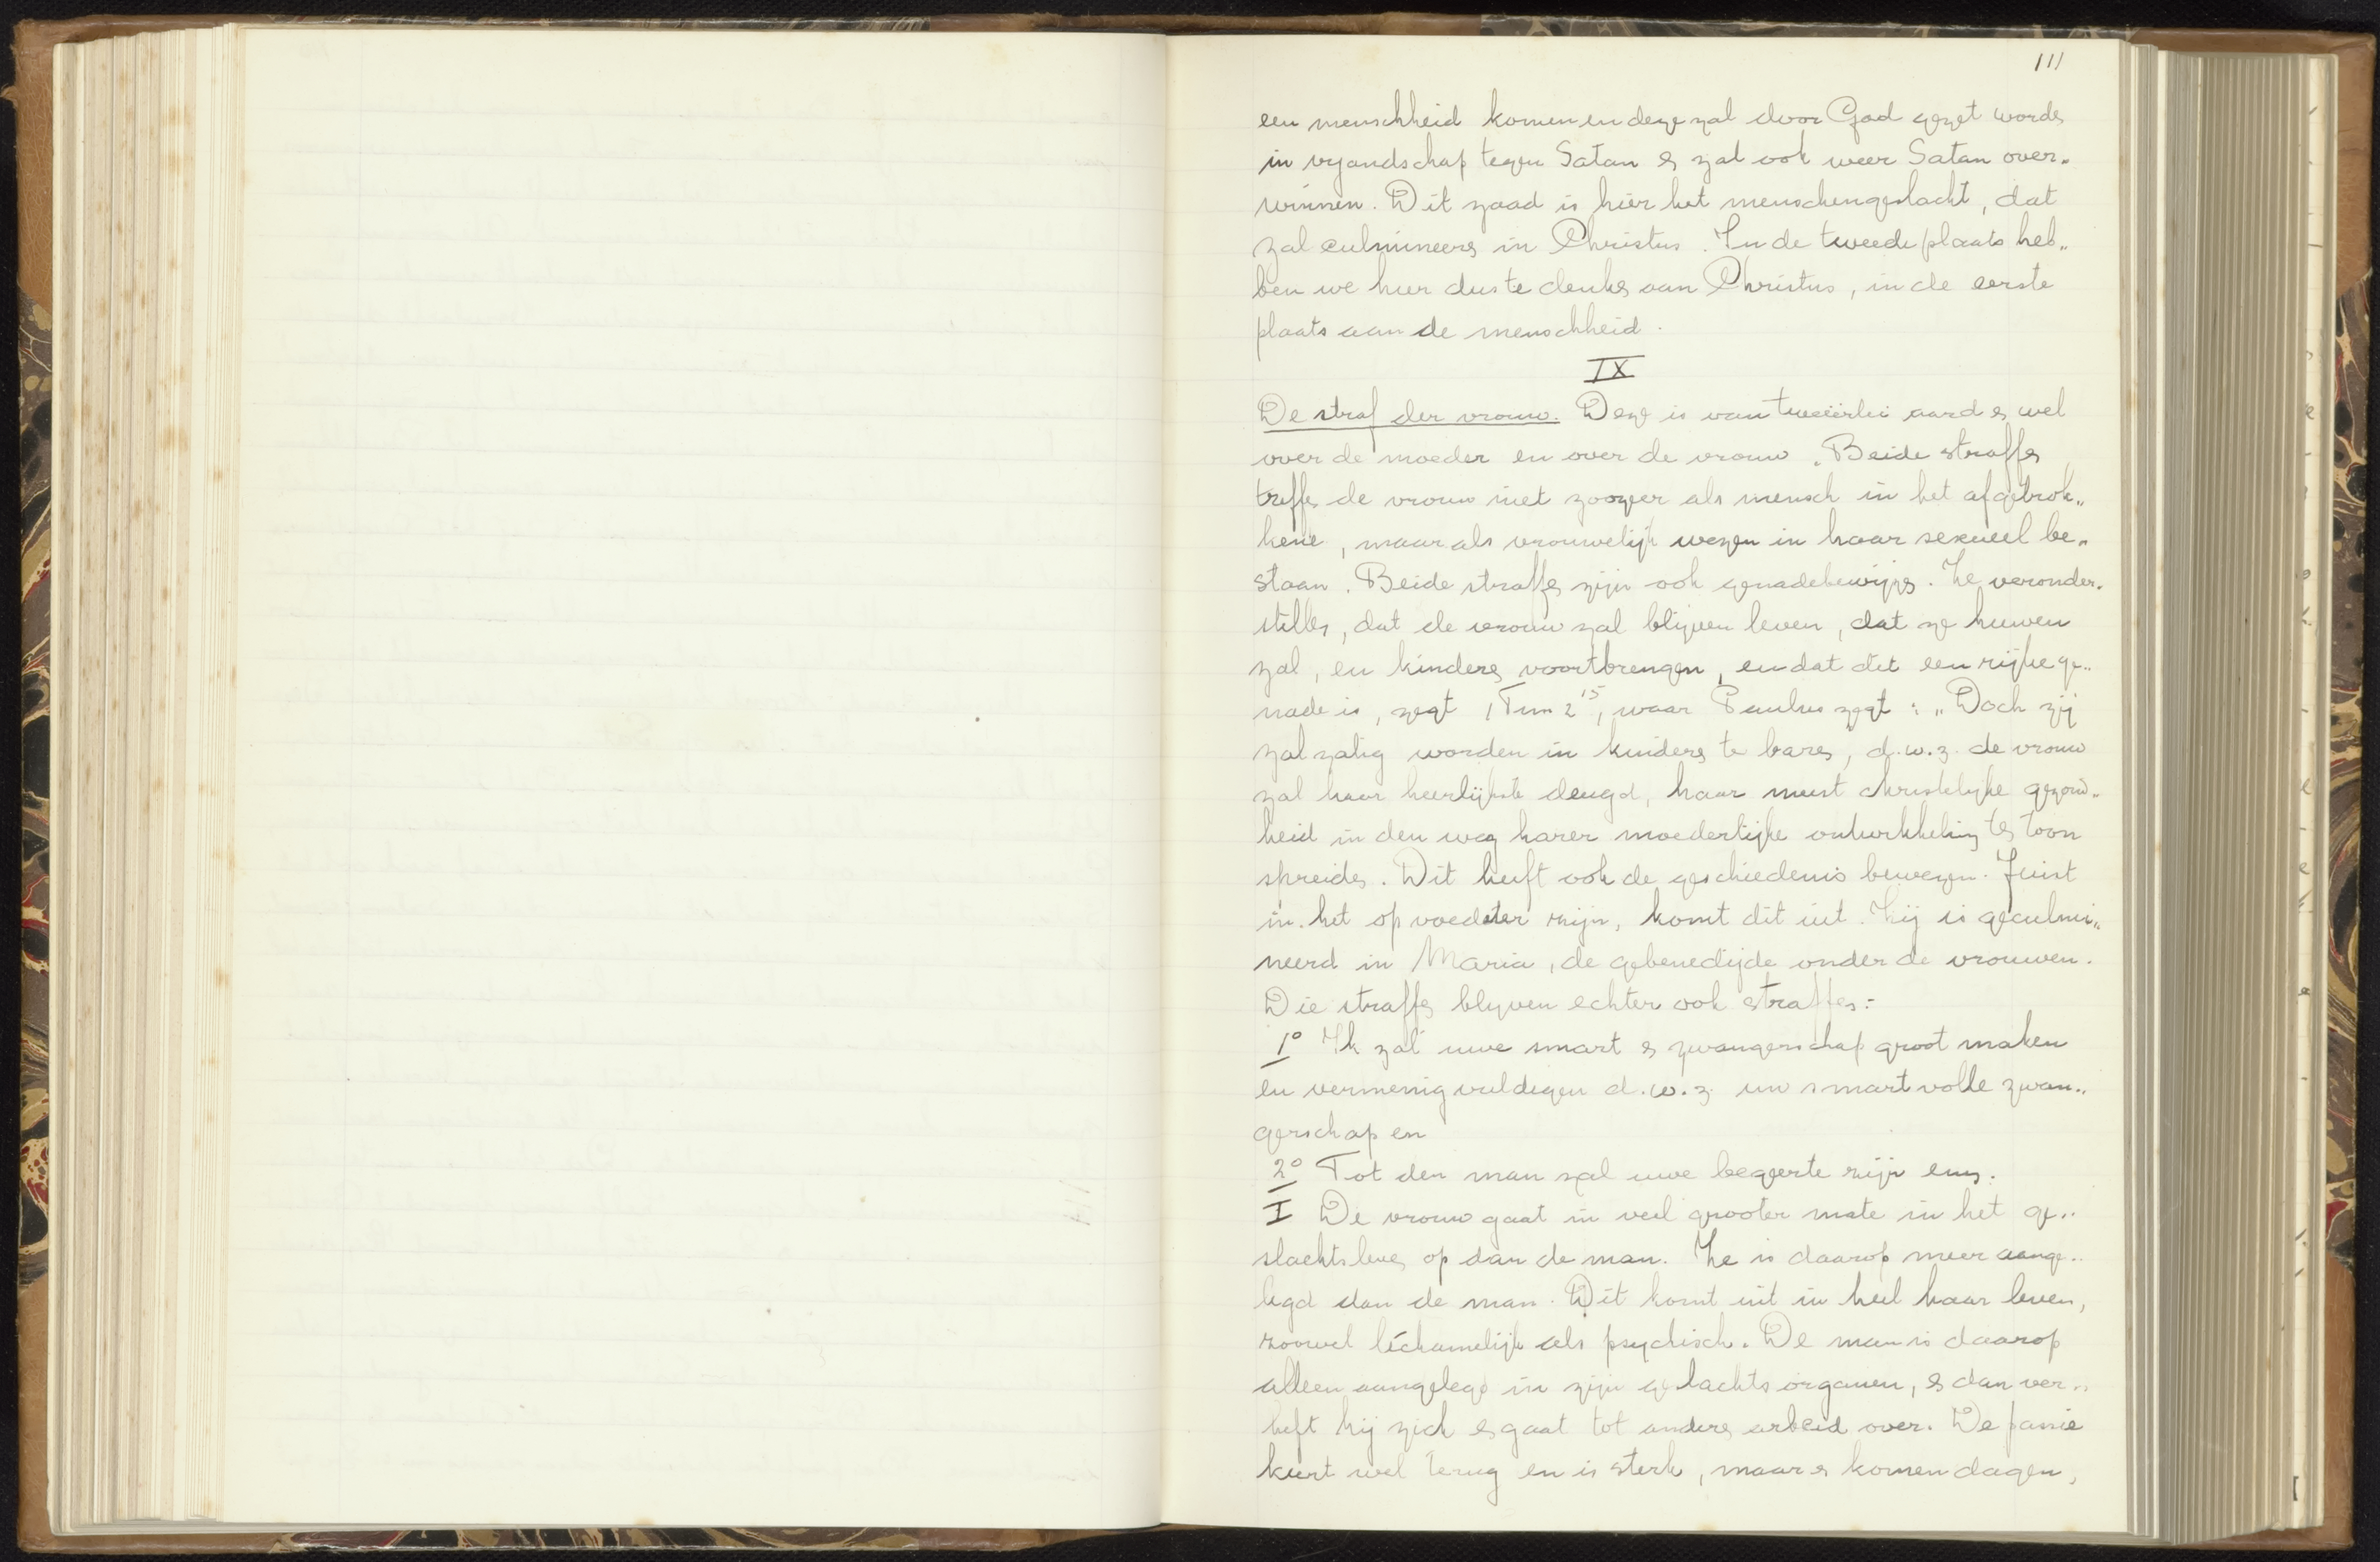 111
een menschheid komen en deze zal door God gezet worden
in vyandschap tegen Satan en zal ook weer Satan over„
winnen. Dit zaad is hier het menschengeslacht, dat
zal culmineeren in Christus. In de tweede plaats heb„
ben we hier dus te denken aan Christus, in de eerste
plaats aan de menschheid.
IX
De straf der vrouw. Deze is van tweeërlei aard en wel
over de moeder en over de vrouw. Beide straffen
treffen de vrouw niet zoozeer als mensch in het afgetrok„
kene, maar als vrouwelijk wezen in haar sexueel be„
staan. Beide straffen zijn ook genadebewijzen. Ze veronder„
stellen, dat de vrouw zal blijven leven, dat ze huwen
zal, en kinderen voortbrengen, en dat dit een rijke ge„
nade is, zegt 1 Tim 2 15, waar Paulus zegt: „Doch zij
zal zalig worden in kinderen te baren, d.w.z. de vrouw
zal haar heerlijkste deugd, haar meest christelijke gezond„
heid in den weg harer moederlijke ontwikkeling ten toon
spreiden. Dit heeft ook de geschiedenis bewezen. Juist
in het opvoedster zijn, komt dit uit. Zij is geculmi„
neerd in Maria, de gebenedijde onder de vrouwen.
Die straffen blyven echter ook straffen:
1° Ik zal uwe smart en zwangerschap groot maken
en vermenigvuldigen d.w.z. uw smartvolle zwan„
gerschap en
2° Tot den man zal uwe begeerte zijn enz.
I De vrouw gaat in veel grooter mate in het ge„
slachtsleven op dan de man. Ze is daarop meer aange„
legd dan de man. Dit komt uit in heel haar leven,
zoowel lichamelijk als psychisch. De man is daarop
alleen aangelegd in zijn geslachtsorganen, en dan ver„
heft hij zich en gaat tot anderen arbeid over. De passie
keert wel terug en is sterk, maar er komen dagen,